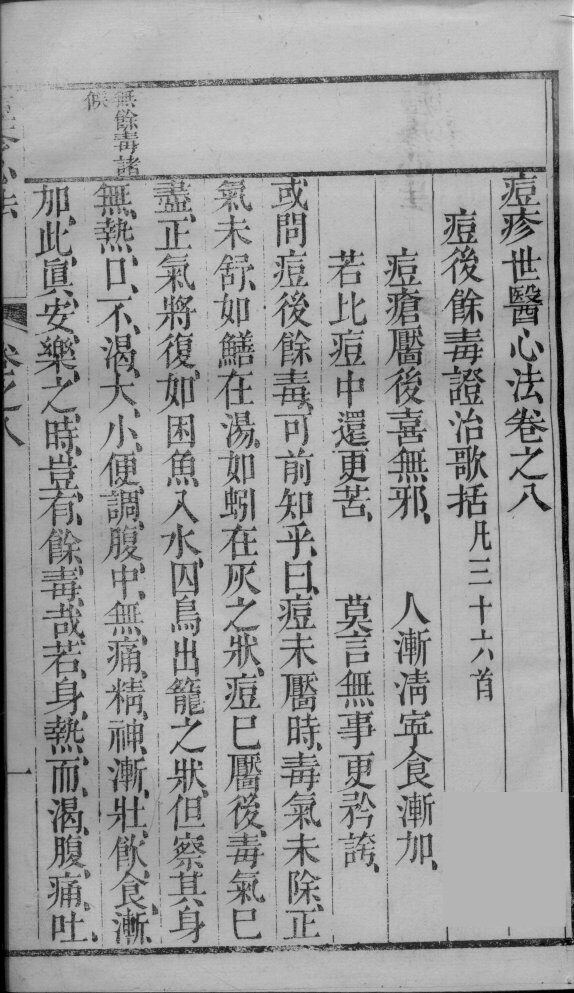 痘疹世醫心法卷之八
痘後餘毒證治歌括凡三十六首
痘瘡靨後喜無邪、人漸淸寧食漸加、
若比痘中還更苦、莫言無事更矜誇、
或問痘後餘毒、可前知乎、曰、痘未靨時、毒氣未除、正
氣未舒、如鱔在湯、如蚓在灰之狀、痘已靨後、毒氣已
盡、正氣將復、如困魚入水、囚鳥出籠之狀、但察其身
無熱、口不渴、大小便調、腹中無痛、精神漸壯、飲食漸
加、此眞安樂之時、豈有餘毒哉、若身熱而渴、腹痛吐、
無餘毒諸
候
心法
卷之八
一